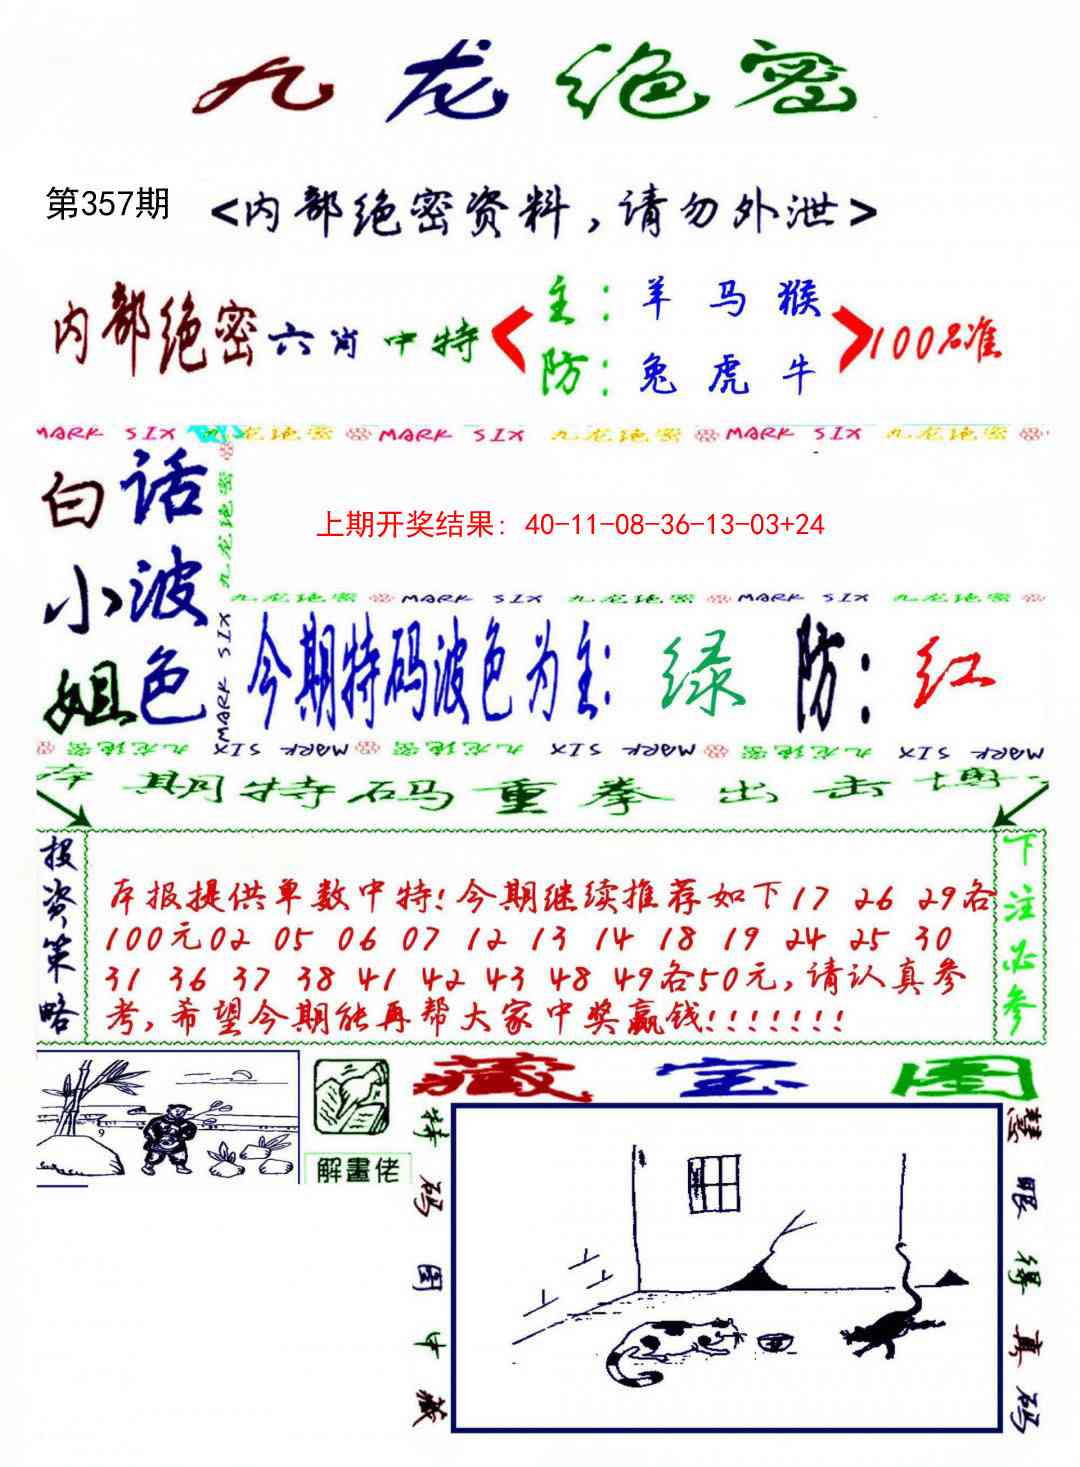 九龙绝密
第357期 <内部绝密资料,请勿外泄>
内部绝密六肖中特
主:羊 马 猴
防:兔 虎 牛
100%准
MARK SIX 九龙绝密 MARK SIX 九龙绝密 MARK SIX 九龙绝密
白小姐
话波色
九龙绝密
MARK SIX
上期开奖结果: 40-11-08-36-13-03+24
九龙绝密 MARK SIX 九龙绝密 MARK SIX 九龙绝密
今期特码波色为主:绿 防:红
九龙绝密 MARK SIX 九龙绝密 MARK SIX 九龙绝密 MARK SIX
本期特码重拳出击博
投资策略
本报提供单数中特!今期继续推荐如下17 26 29各
100元02 05 06 07 12 13 14 18 19 24 25 30
31 36 37 38 41 42 43 48 49各50元,请认真参
考,希望今期能再帮大家中奖赢钱!!!!!!!
下注必参
解畫佬
藏宝图
特码图中藏
慧眼得真码